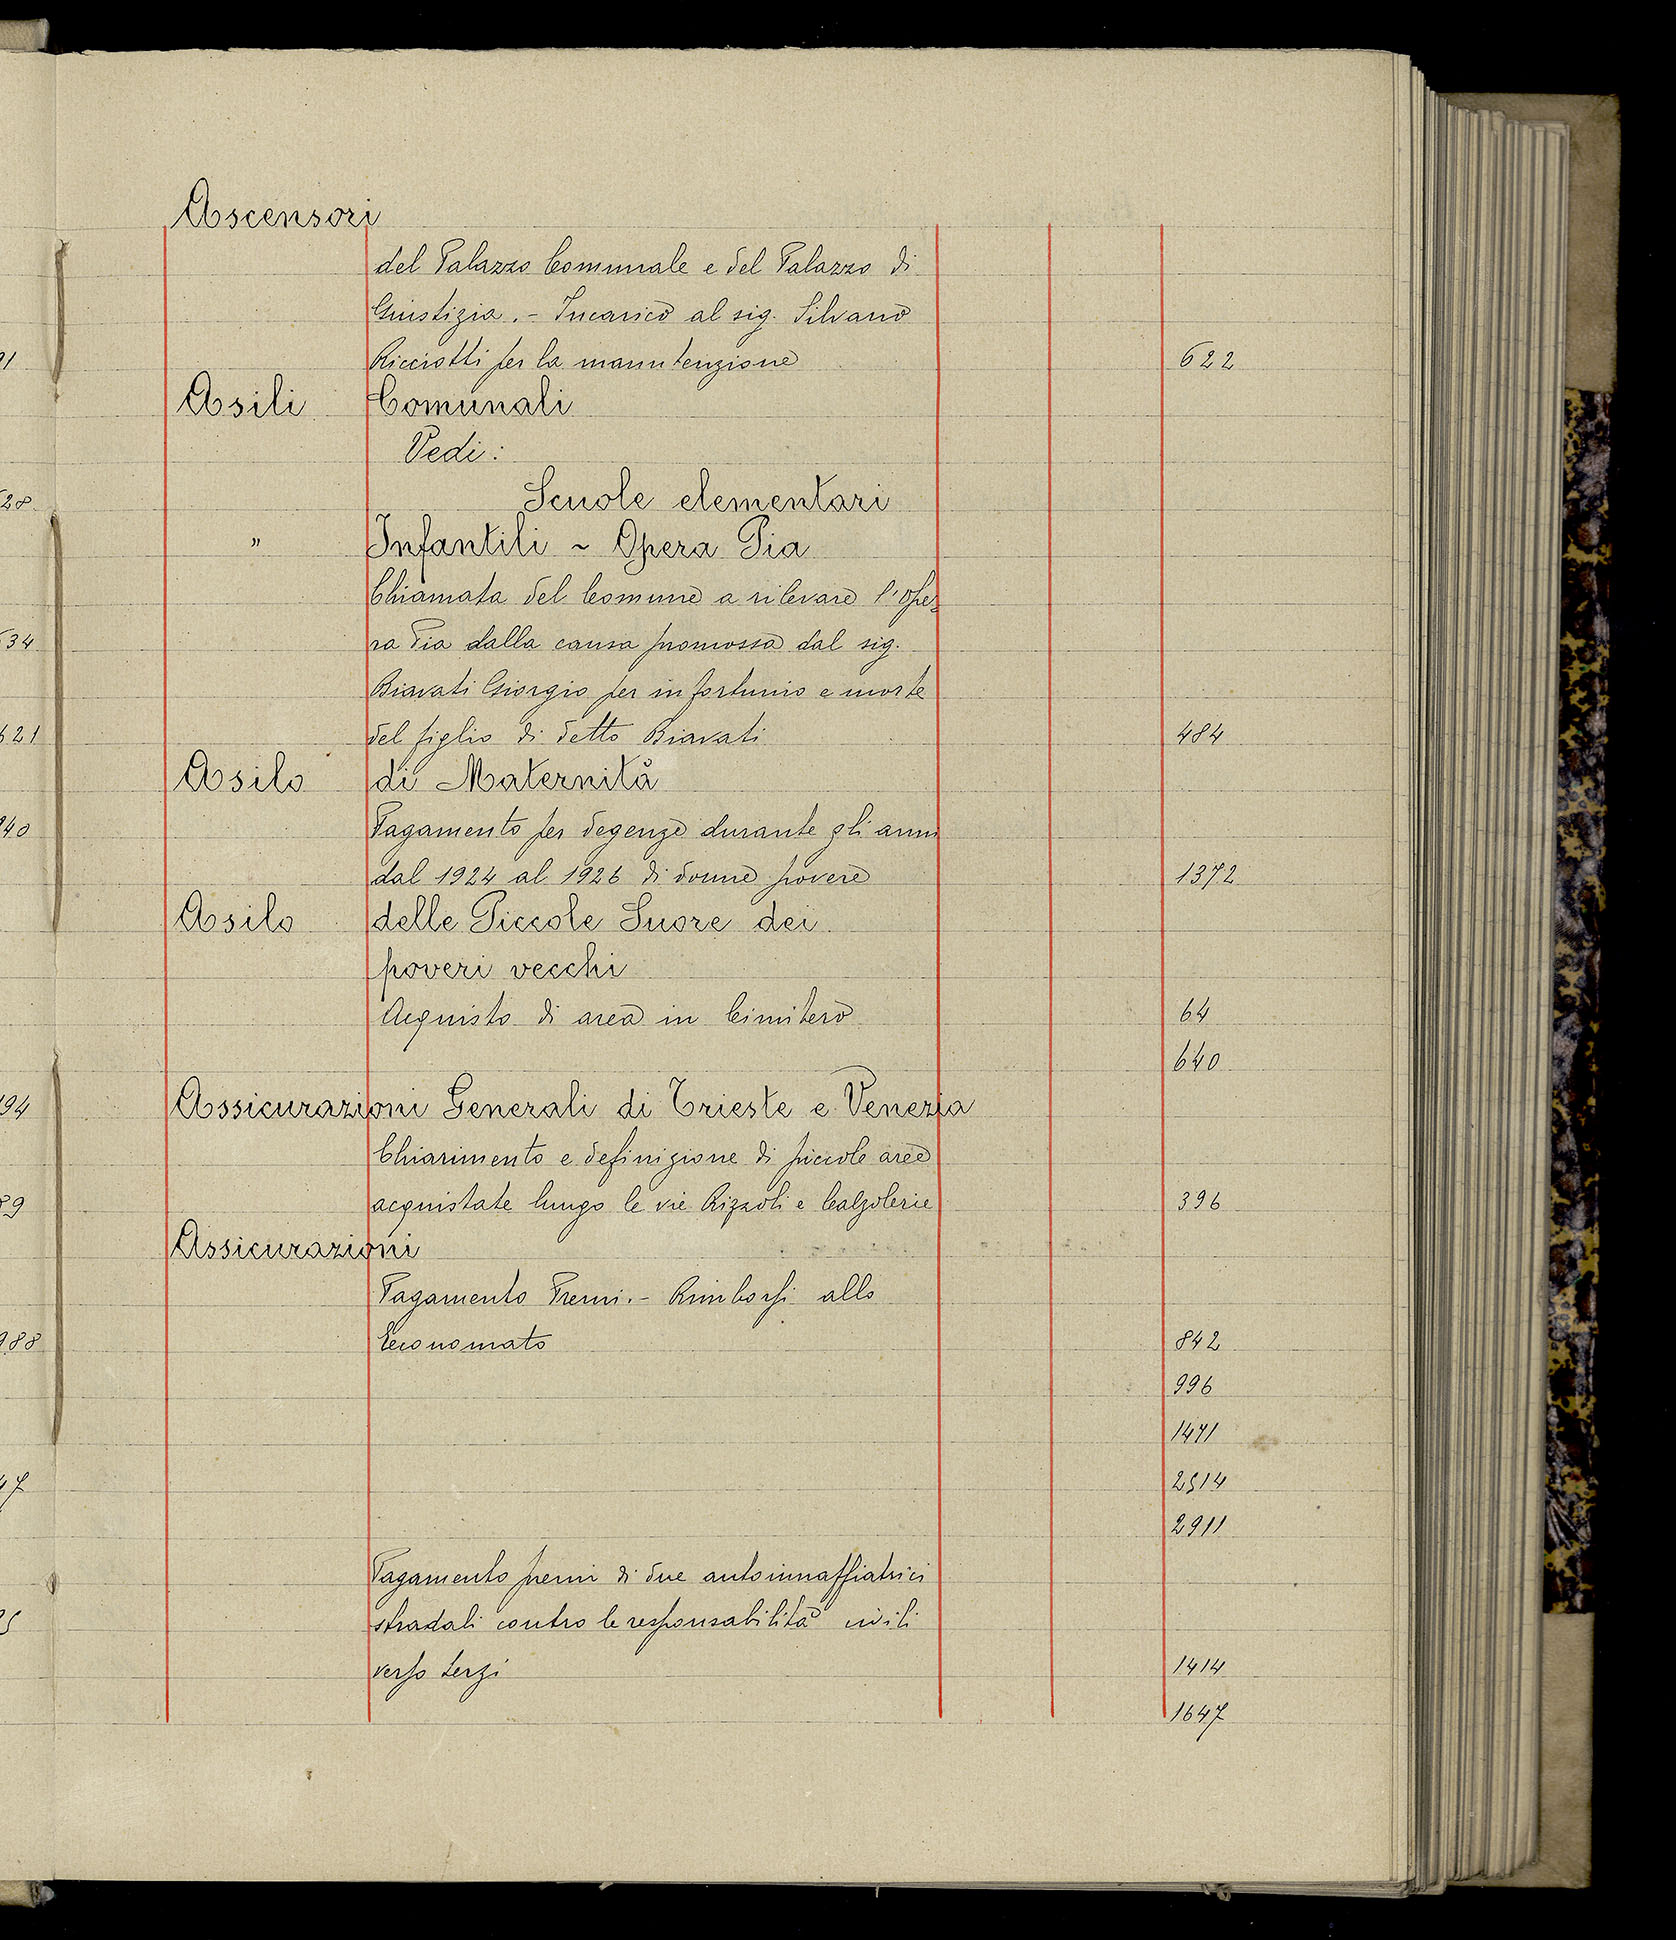 Ascensori
del Palazzo Comunale e del Palazzo di
Giustizia. - Incarico al sig. Silvano
Ricciotti per la manutenzione 622
Asili Comunali
Vedi:
Scuole elementari
" Infantili ~ Opera Pia
Chiamata del Comune a rilevare l'Ope-
ra Pia dalla causa promossa dal sig.
Biavati Giorgio per infortunio e morte
del figlio di detto Biavati 484
Asilo di Maternità
Pagamento per degenze durante gli anni
dal 1924 al 1926 di donne povere 1372
Asilo delle Piccole Suore dei
poveri vecchi
Acquisto di area in Cimitero 64
640
Assicurazioni Generali di Trieste e Venezia
Chiarimento e definizione di piccole aree
acquistate lungo le vie Rizzoli e Calzolerie 396
Assicurazioni
Pagamento Premi. - Rimborsi allo
Economato 842
996
1471
2514
2911
Pagamento premi di due autoinnaffiatrici
stradali contro le responsabilità civili
verso terzi 1414
1647